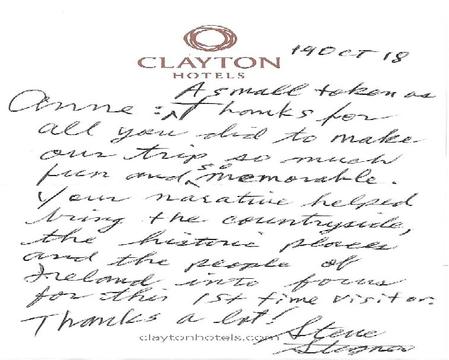 CLAYTON
HOTELS
19 OCT 18
A small token as
Anne: Thanks for
all you did to make
our trip so much
fun and so memorable.
Your narative helped
bring the countryside,
the historic places
and the people of
Ireland into focus
for this 1st time visitor.
Thanks a lot!
claytonhotels.com
Steve